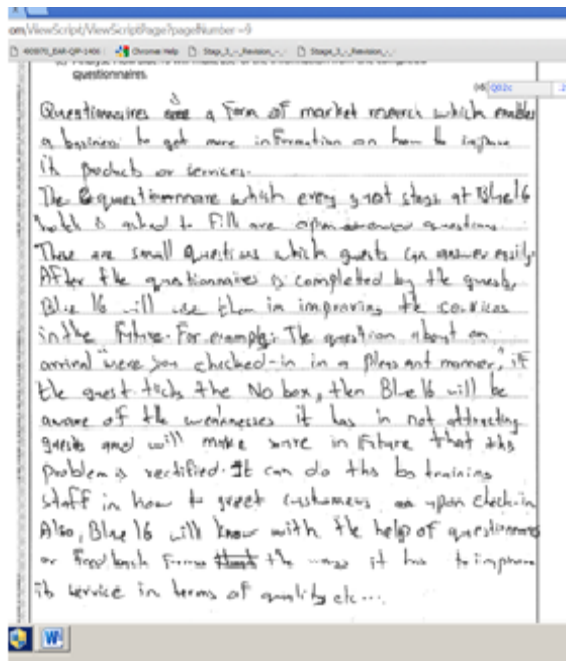 om/ViewScript/ViewScriptPage?pageNumber=9
Chrome Help Stage_3_-_Revision_-_ Stage_3_-_Revision_-_
questionnaires.
Q02c
Questionnaires is a form of market research which enables
a business to get more information on how to improve
it products or services.
The questionnare which every guest stays at Blue16
hotels is asked to fill are open questions.
These are small questions which guests can answer easily.
After the questionnaires is completed by the guests,
Blue 16 will use them in improving the services
in the future. For example: The question about on
arrival "were you checked-in in a pleasant manner," if
the guest ticks the No box, then Blue16 will be
aware of the weaknesses it has in not attracting
guests and will make sure in future that this
problem is rectified. It can do this by training
staff in how to greet customers upon check-in
Also, Blue 16 will know with the help of questionnaires
or feedback forms the ways it has to improve
its service in terms of quality etc...
W